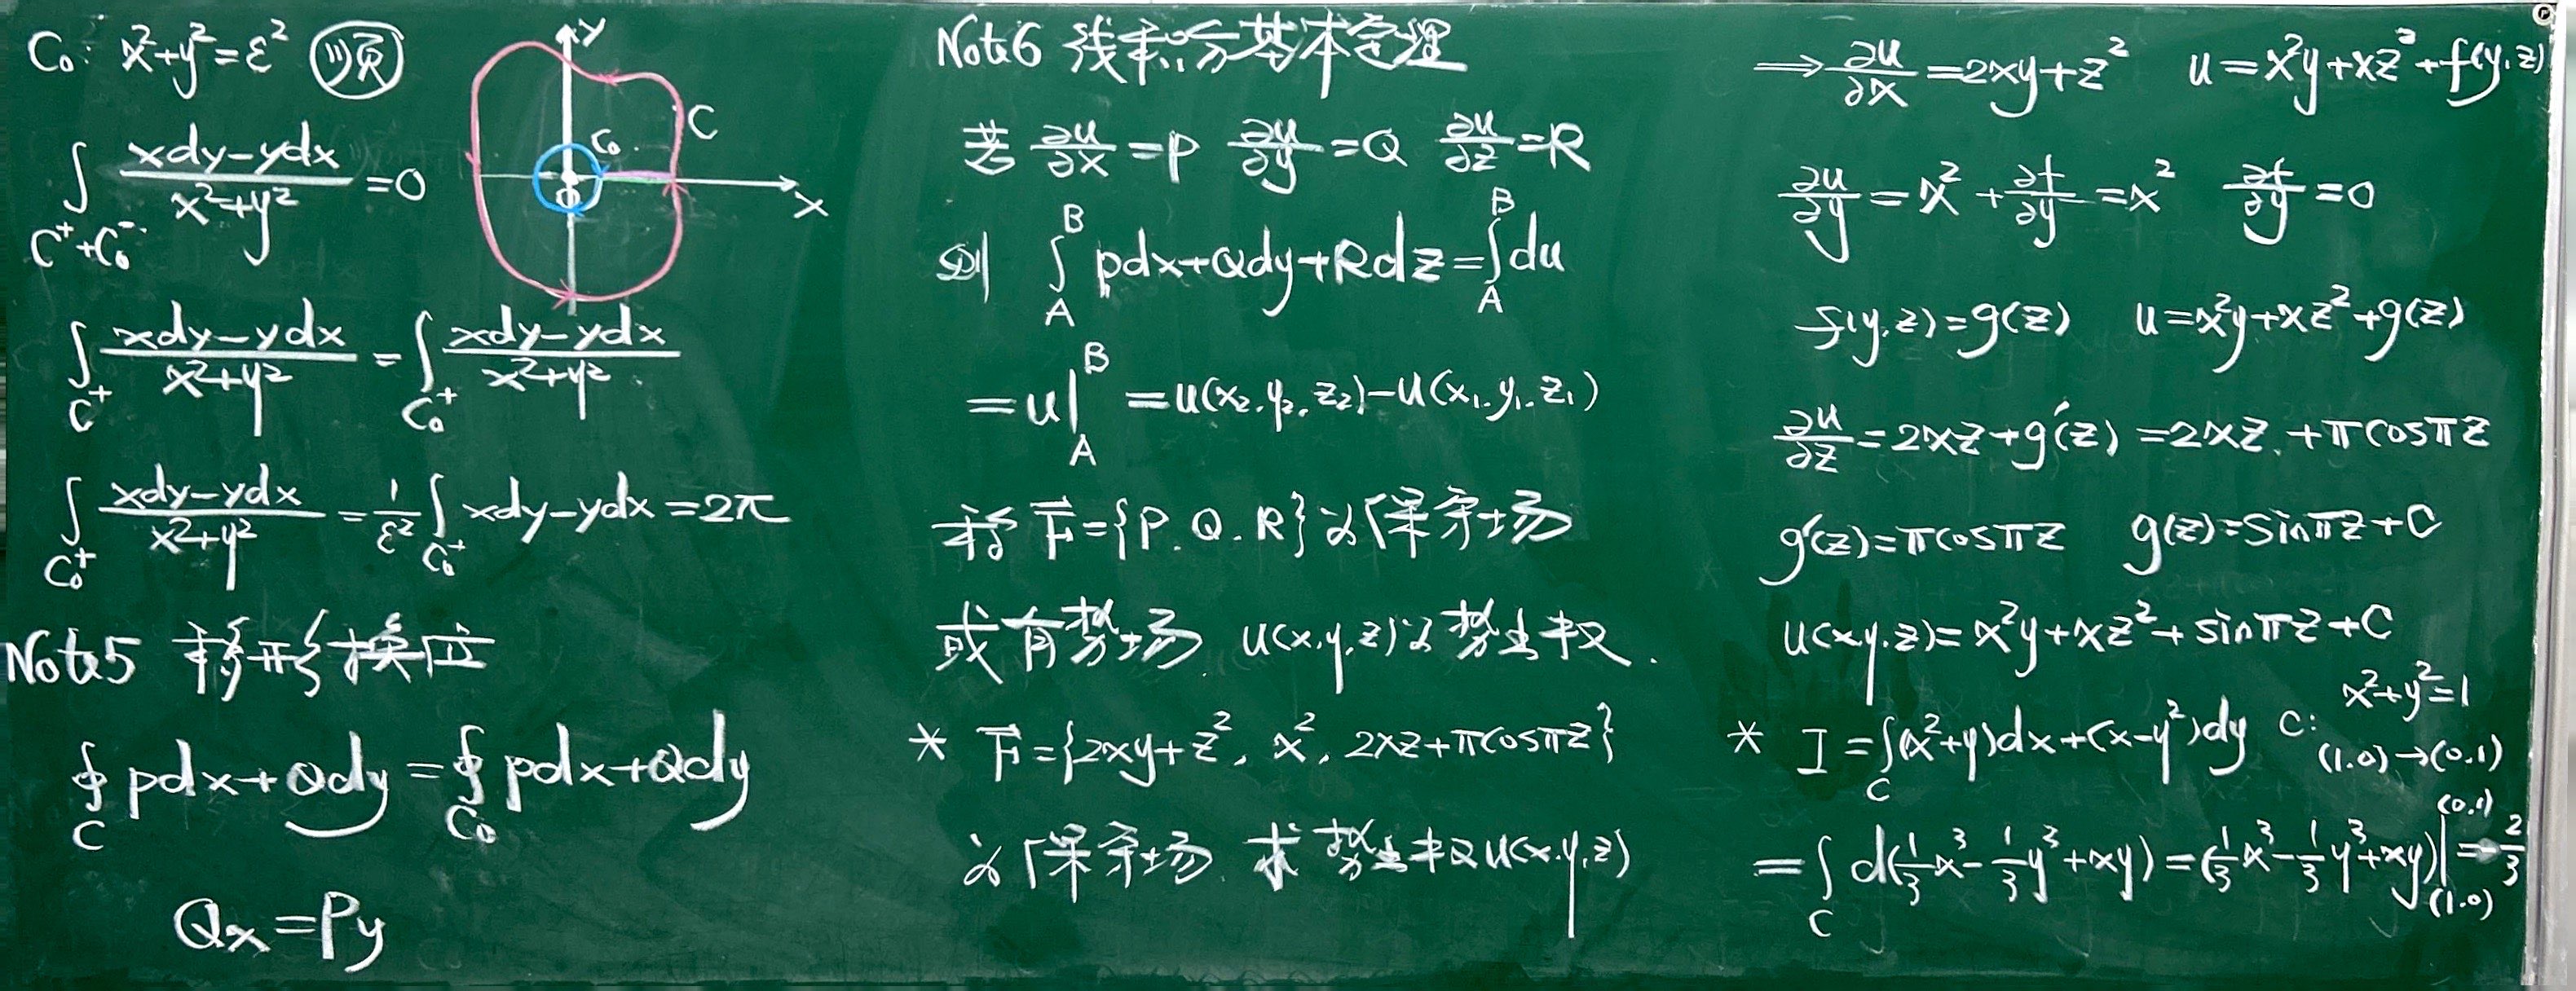 C₀: x²+y²=ε² 顺
∫_{C⁺+C₀⁻} (xdy-ydx)/(x²+y²) =0
y
C
C₀
O
x
∫_{C⁺} (xdy-ydx)/(x²+y²) = ∫_{C₀⁺} (xdy-ydx)/(x²+y²)
∫_{C₀⁺} (xdy-ydx)/(x²+y²) = 1/ε² ∫_{C₀⁺} xdy-ydx =2π
Note5 移形换位
∮_C pdx+Qdy = ∮_{C₀} pdx+Qdy
Qx=Py
Note6 线积分基本定理
若 ∂u/∂x =P ∂u/∂y =Q ∂u/∂z =R
则 ∫_A^B pdx+Qdy+Rdz = ∫_A^B du
=u|_A^B =u(x₂,y₂,z₂)-u(x₁,y₁,z₁)
称 F⃗={P,Q,R}为保守场
或有势场 u(x,y,z)为势函数.
* F⃗={2xy+z², x², 2xz+πcosπz}
为保守场 求势函数u(x,y,z)
⟹ ∂u/∂x =2xy+z² u=x²y+xz²+f(y,z)
∂u/∂y = x² + ∂f/∂y =x² ∂f/∂y =0
f(y,z)=g(z) u=x²y+xz²+g(z)
∂u/∂z =2xz+g′(z) =2xz+πcosπz
g′(z)=πcosπz g(z)=sinπz+C
u(x,y,z)=x²y+xz²+sinπz+C
* I=∫_C (x²+y)dx+(x-y²)dy C: x²+y²=1
(1,0)→(0,1)
=∫_C d(1/3 x³-1/3 y³+xy) =(1/3 x³-1/3 y³+xy)|_{(1,0)}^{(0,1)} =-2/3